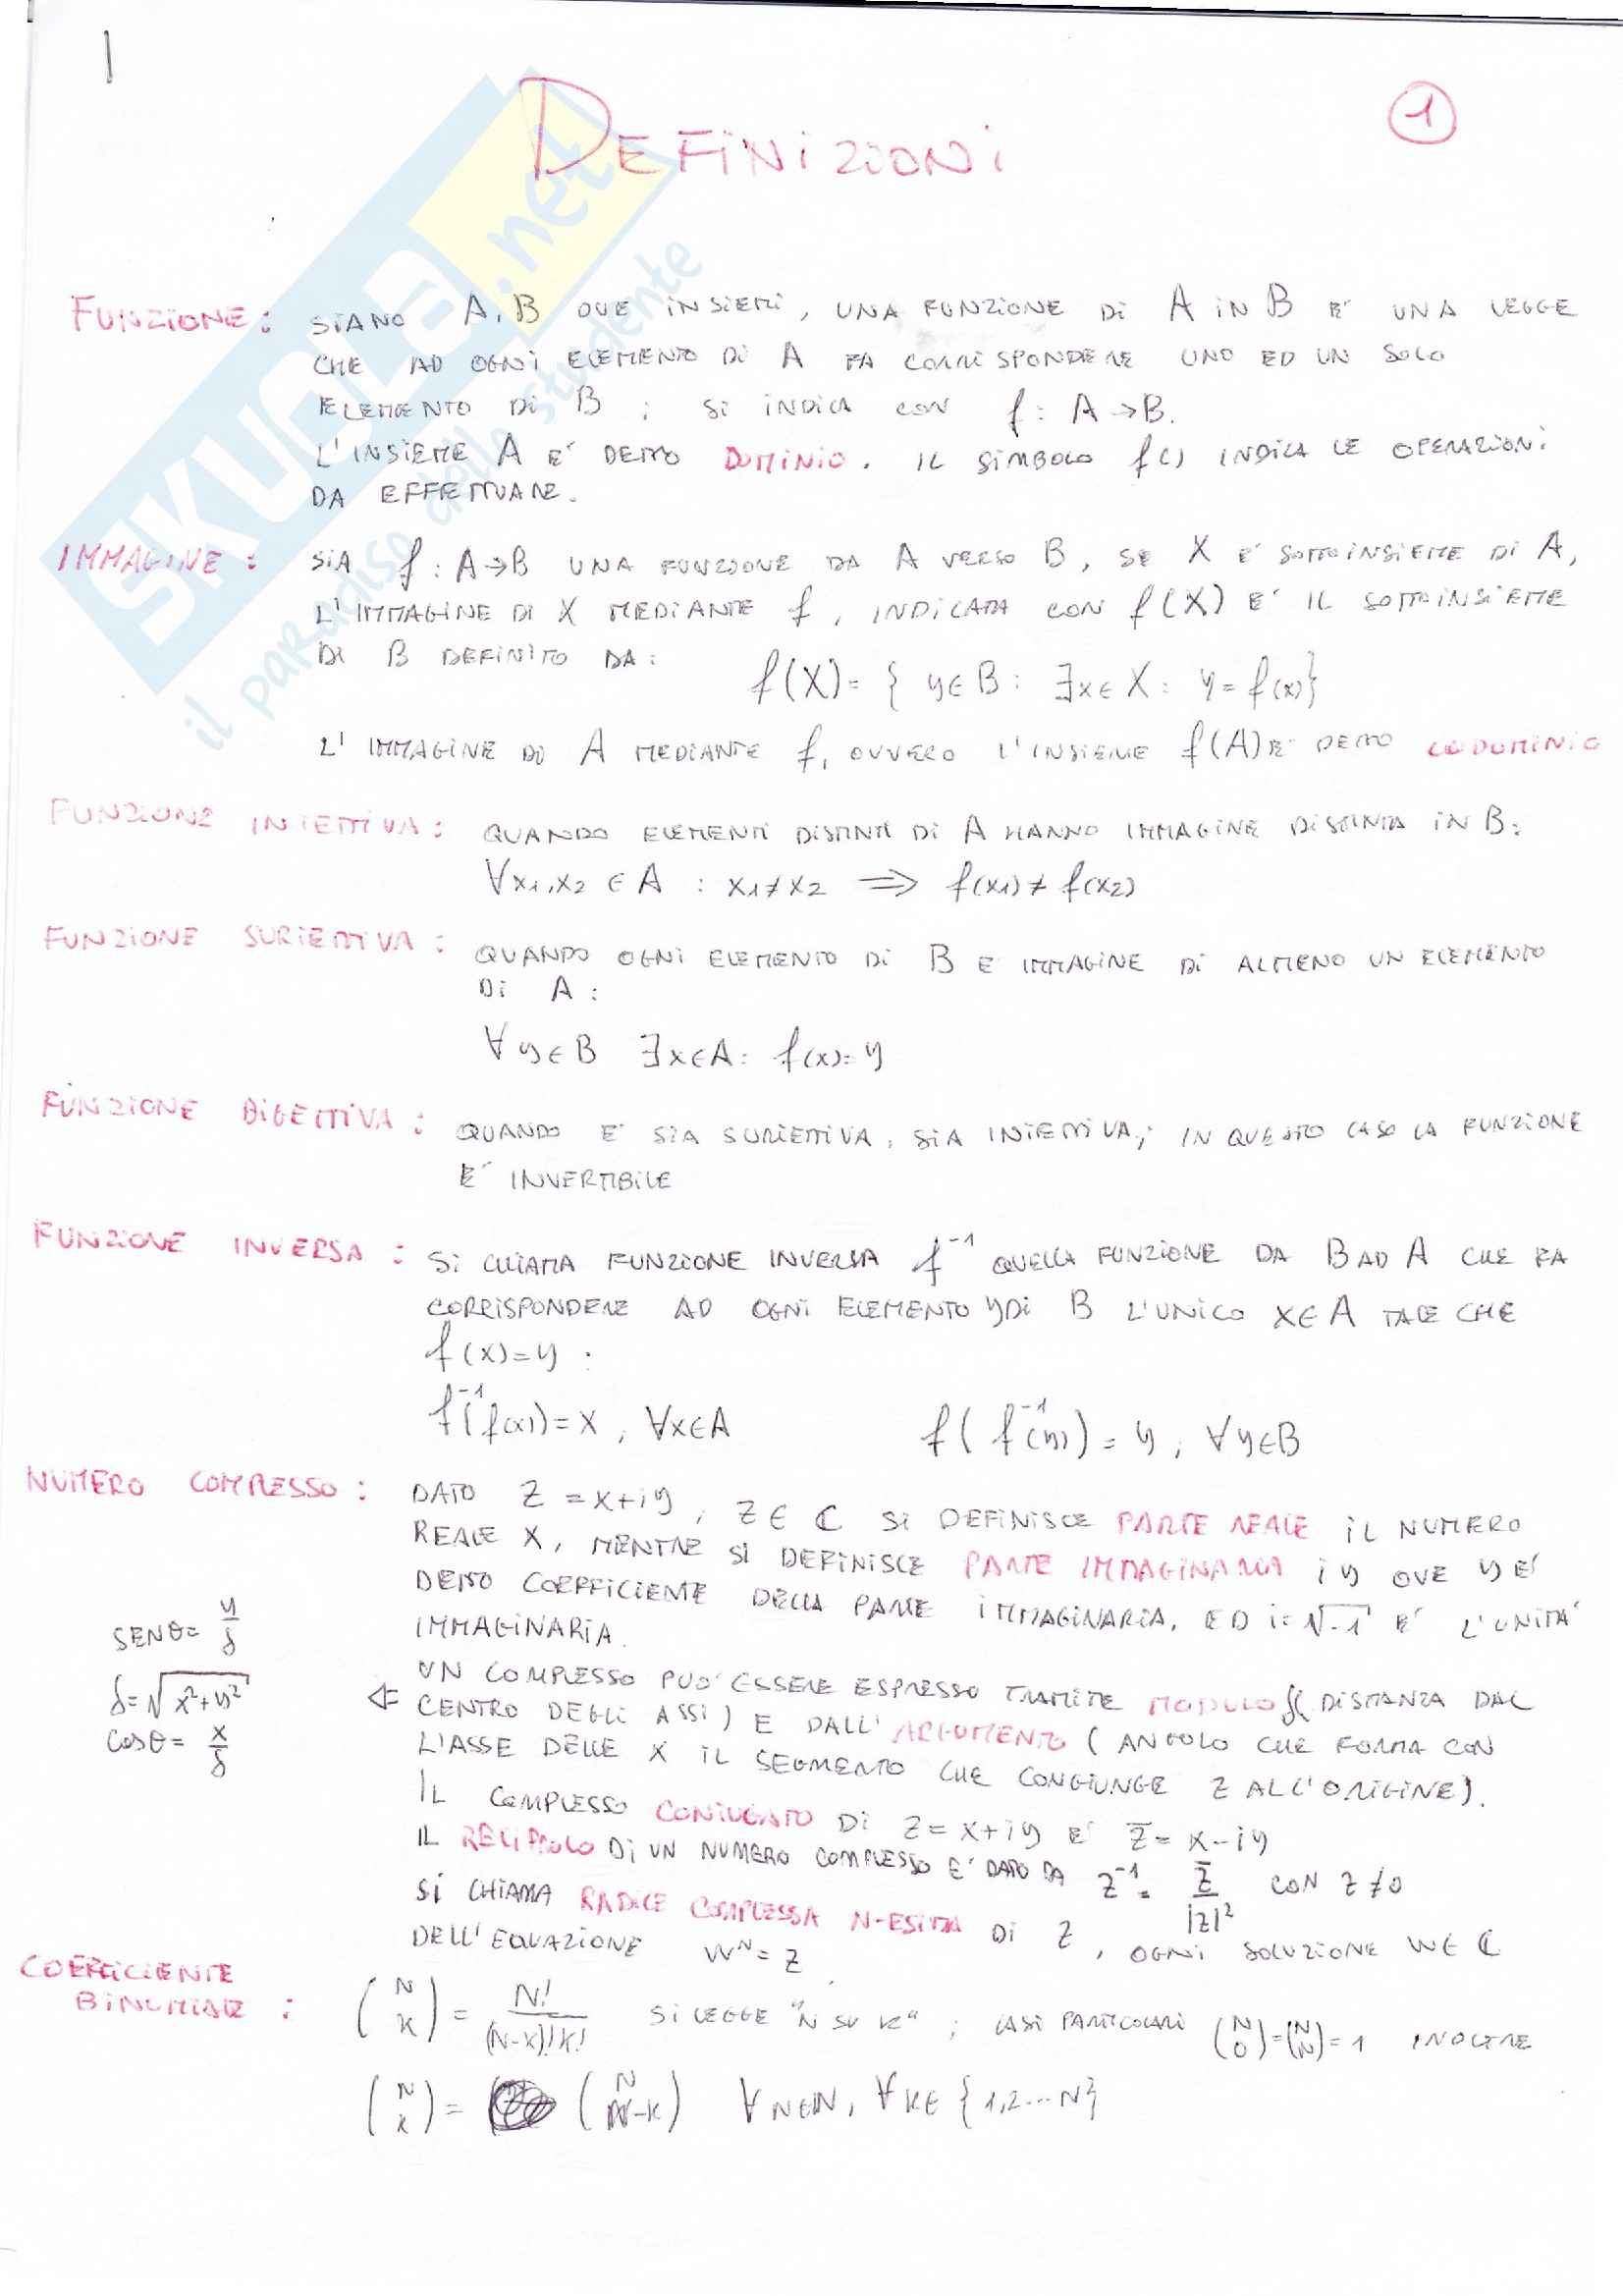 1
DEFINIZIONI
SKUOLA.net
il paradiso dello studente
FUNZIONE: SIANO A, B DUE INSIEMI, UNA FUNZIONE DI A IN B E' UNA LEGGE
CHE AD OGNI ELEMENTO DI A FA CORRISPONDERE UNO ED UN SOLO
ELEMENTO DI B ; SI INDICA CON f: A→B.
L'INSIEME A E' DETTO DOMINIO. IL SIMBOLO f( ) INDICA LE OPERAZIONI
DA EFFETTUARE.
IMMAGINE: SIA f: A→B UNA FUNZIONE DA A VERSO B, SE X E' SOTTOINSIEME DI A,
L'IMMAGINE DI X MEDIANTE f, INDICATA CON f(X) E' IL SOTTOINSIEME
DI B DEFINITO DA: f(X)= { y∈B: ∃x∈X: y=f(x)}
L'IMMAGINE DI A MEDIANTE f, OVVERO L'INSIEME f(A) E' DETTO CODOMINIO
FUNZIONE INIETTIVA: QUANDO ELEMENTI DISTINTI DI A HANNO IMMAGINE DISTINTA IN B:
∀x1,x2 ∈ A : x1≠x2 ⟹ f(x1)≠f(x2)
FUNZIONE SURIETTIVA: QUANDO OGNI ELEMENTO DI B E IMMAGINE DI ALMENO UN ELEMENTO
DI A:
∀y∈B ∃x∈A: f(x)=y
FUNZIONE BIGETTIVA: QUANDO E' SIA SURIETTIVA, SIA INIETTIVA; IN QUESTO CASO LA FUNZIONE
E' INVERTIBILE
FUNZIONE INVERSA: SI CHIAMA FUNZIONE INVERSA f⁻¹ QUELLA FUNZIONE DA B AD A CHE FA
CORRISPONDERE AD OGNI ELEMENTO y DI B L'UNICO X∈A TALE CHE
f(x)=y :
f⁻¹(f(x))=x, ∀x∈A f(f⁻¹(y))=y, ∀y∈B
NUMERO COMPLESSO: DATO Z=x+iy, Z∈ℂ SI DEFINISCE PARTE REALE IL NUMERO
REALE X, MENTRE SI DEFINISCE PARTE IMMAGINARIA iy OVE y E'
DETTO COEFFICIENTE DELLA PARTE IMMAGINARIA, ED i=√-1 E' L'UNITA'
IMMAGINARIA.
SENθ= y/δ
δ=√x²+y²
COSθ= x/δ
UN COMPLESSO PUO' ESSERE ESPRESSO TRAMITE MODULO δ (DISTANZA DAL
⇐ CENTRO DEGLI ASSI) E DALL'ARGOMENTO (ANGOLO CHE FORMA CON
L'ASSE DELLE X IL SEGMENTO CHE CONGIUNGE Z ALL'ORIGINE).
IL COMPLESSO CONIUGATO DI Z=x+iy E' Z̄=x-iy
IL RECIPROCO DI UN NUMERO COMPLESSO E' DATO DA Z⁻¹= Z̄/|Z|² CON Z≠0
SI CHIAMA RADICE COMPLESSA N-ESIMA DI Z, OGNI SOLUZIONE W∈ℂ
DELL'EQUAZIONE Wᴺ=Z
COEFFICIENTE
BINOMIALE: (N K) = N!/(N-K)!K! SI LEGGE "N SU K" ; CASI PARTICOLARI (N 0)=(N N)=1 INOLTRE
(N K) = (N N-K) ∀N∈ℕ, ∀K∈{1,2...N}